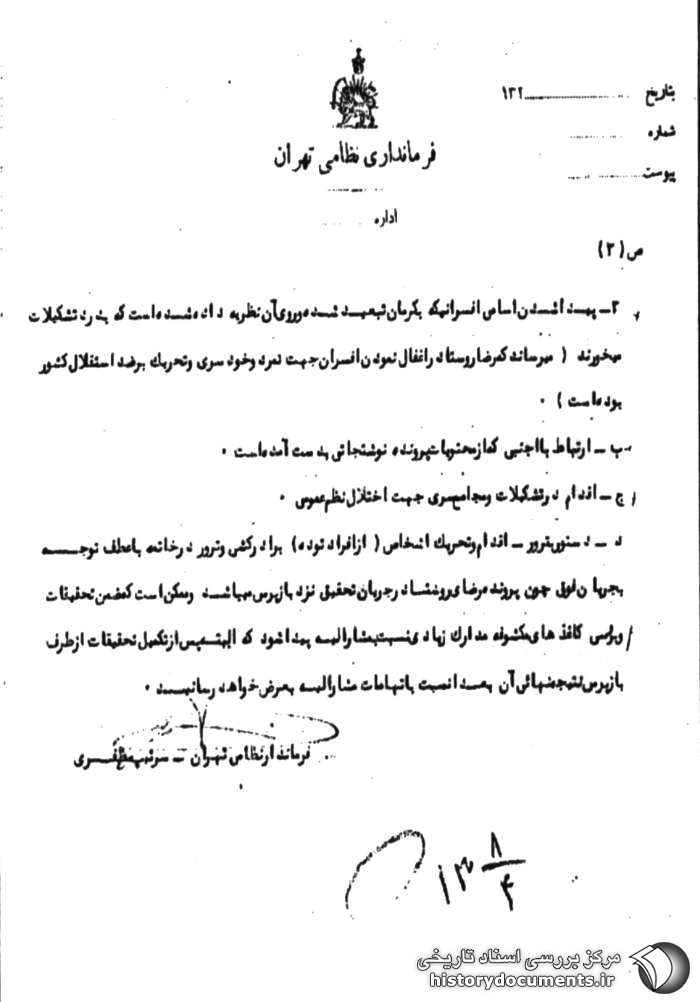 بتاریخ ۱۳۲
شماره
پیوست
فرمانداری نظامی تهران
اداره
ص (۲)
۲ـ پیدا شدن اسامی افسرانیکه بکرمان تبعید شده و روی آن نظریه داده شده است که بدرد تشکیلات
میخورند ( میرساند که رضا روستا در اغفال نمودن افسران جهت تمرد و خودسری و تحریک برضد استقلال کشور
بوده است ) .
ب ـ ارتباط با اجنبی که از محتویات پرونده نوشتجاتی بدست آمده است .
ج ـ اقدام در تشکیلات و مجامع سری جهت اختلال نظم عمومی .
د ـ دستور ترور ـ اقدام و تحریک اشخاص ( از افراد توده ) برادرکشی و ترور در خاتمه با عطف توجه
بجریان فوق چون پرونده رضای روستا در جریان تحقیق نزد بازپرس میباشد و ممکن است که ضمن تحقیقات
و بررسی کاغذ های مکشوفه مدارک زیادی نسبت بمشارالیه پیدا شود که البته پس از تکمیل تحقیقات از طرف
بازپرس نتیجه نهائی آن بعدا نسبت باتهامات مشارالیه بعرض خواهد رسانید .
فرماندار نظامی تهران ـ سرتیپ مظفری
مرکز بررسی اسناد تاریخی
historydocuments.ir